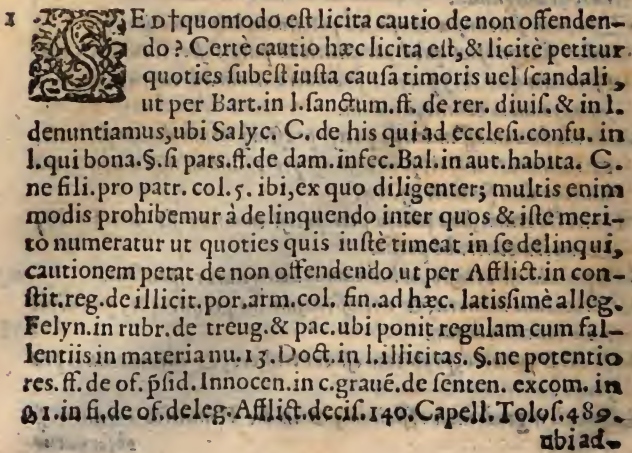 1 SED †quomodo est licita cautio de non offenden-
do? Certè cautio hæc licita est, & licitè petitur
quoties subest iusta causa timoris uel scandali,
ut per Bart. in l. sanctum. ff. de rer. diuis. & in l.
denuntiamus, ubi Salyc. C. de his qui ad ecclesi. confu. in
l. qui bona. §. si pars. ff. de dam. infec. Bal. in aut. habita. C.
ne fili. pro patr. col. 5. ibi, ex quo diligenter; multis enim
modis prohibemur à delinquendo inter quos & iste meri-
tò numeratur ut quoties quis iustè timeat in se delinqui,
cautionem petat de non offendendo ut per Afflict. in con-
stit. reg. de illicit. por. arm. col. fin. ad hæc. latissimè alleg.
Felyn. in rubr. de treug. & pac. ubi ponit regulam cum fal-
lentiis in materia nu. 13. Doct. in l. illicitas. §. ne potentio
res. ff. de of. p̃sid. Innocen. in c. grauẽ. de senten. excom. in
1. in fi. de of. deleg. Afflict. decis. 140. Capell. Tolos. 489.
ubi ad-